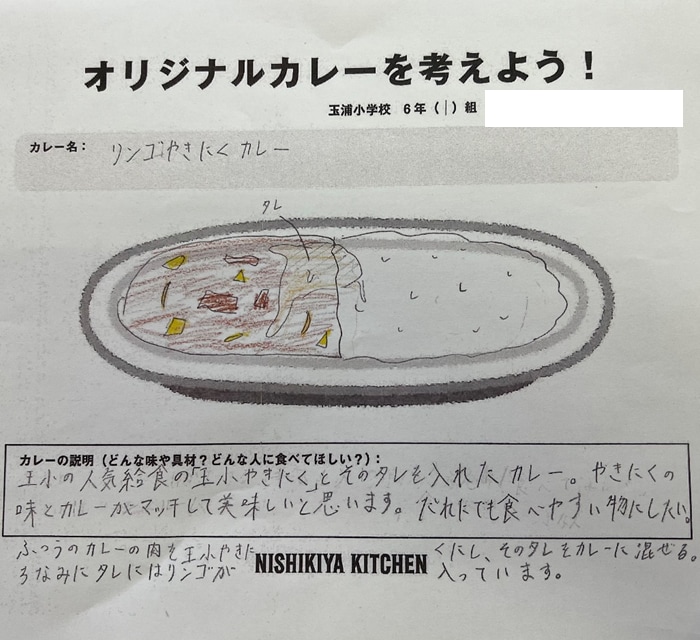 オリジナルカレーを考えよう!
玉浦小学校 6年(1)組
カレー名: リンゴやきにくカレー
タレ
カレーの説明(どんな味や具材?どんな人に食べてほしい?):
玉小の人気給食の「玉小やきにく」とそのタレを入れたカレー。やきにくの
味とカレーがマッチして美味しいと思います。だれにでも食べやすい物にしたい。
ふつうのカレーの肉を玉小やきにくにし、そのタレをカレーに混ぜる。
ちなみにタレにはリンゴが入っています。
NISHIKIYA KITCHEN